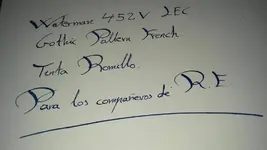 Waterman 452V LEC
Gothic Pattern French
Tinta Romillo.
Para los compañeros de R.E